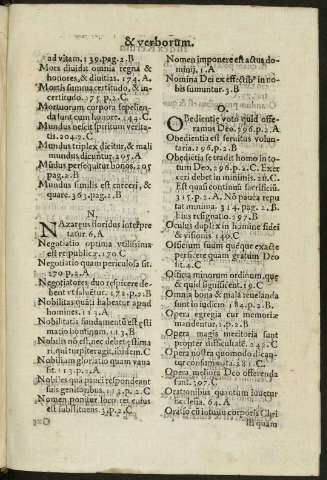 & verborum.
ad vitam. 139. pag. 2. B
Mors dividit omnia regna &
honores, & divitias. 174. A.
Mortis summa certitudo, & in-
certitudo. 175 p. 2. C
Mortuorum corpora sepelien-
da sunt cum honore. 144. C.
Mundus nescit spiritum verita-
tis. 204. 2. C
Mundus triplex dicitur, & mali
mundus dicuntur. 205. A
Mundus persequitur bonos. 205
pag. 2. B
Mundus similis est carceri, &
quare. 363. pag. 2. B
N.
NAzareus floridus interpre
tatur 6. A
Negotiatio optima utilissima
est reipublicæ. 170 C
Negotiatio quam periculosa sit.
170 p. 2. A
Negotiatores duo respicere de-
bent ut salventur. 171. p. 2. B
Nobilitas quâti habeatur apud
homines. 113. A
Nobilitatis fundamentû est esti
matio hominum. 113. B
Nobilis nõ est, nec debet estima
ri, qui turpiter agit. ibidem. C
Nobilium gloriatio quam vana
sit. 113. p. 2. A
Nobiles quâ pauci respondeant
suis genitoribus. 113. p. 2. C
Nomen ponitur loco rei cuius
est substituens 3. p. 2. C
Nomen imponere est actus do-
minij. 1. A
Nomina Dei ex effectib' in no-
bis sumuntur. 3. B
O.
OBedientiæ voto quid offe-
ramus Deo. 596. p. 2. A
Obedientia est servitus volun-
taria. 196. p. 2. B
Obedientia se tradit homo in to-
tum Deo. 296. p. 2. C. Exer
ceri debet in minimis. 28. C.
Est quasi continuû sacrificiû.
315. p. 2. A. Nõ pauca repu
tat minima. 314. pag. 2. B.
Eius refignatio. 297. B
Oculus duplex in homine fidei
& visionis. 140. C
Officium suum quéque exacte
persicere quam gratum Deo
sit. 4. C
Officia minorum ordinum, que
& quid significent. 19. C
Omnia bona & mala revelanda
sunt in iudicio. 184. p. 2. B
Opera egregia cur memoriæ
mandentur. 1. p. 2. B
Opera magis meritoria sunt
propter difficultatê. 242. C
Opera nostra quomodo dican-
tur consummata. 281. C
Opera meliora Deo offerenda
sunt. 307. C
Orationibus quantum iuvetur
Ecclesia. 64. A
Oratio cû ieiunio corporis Chri
sti quam